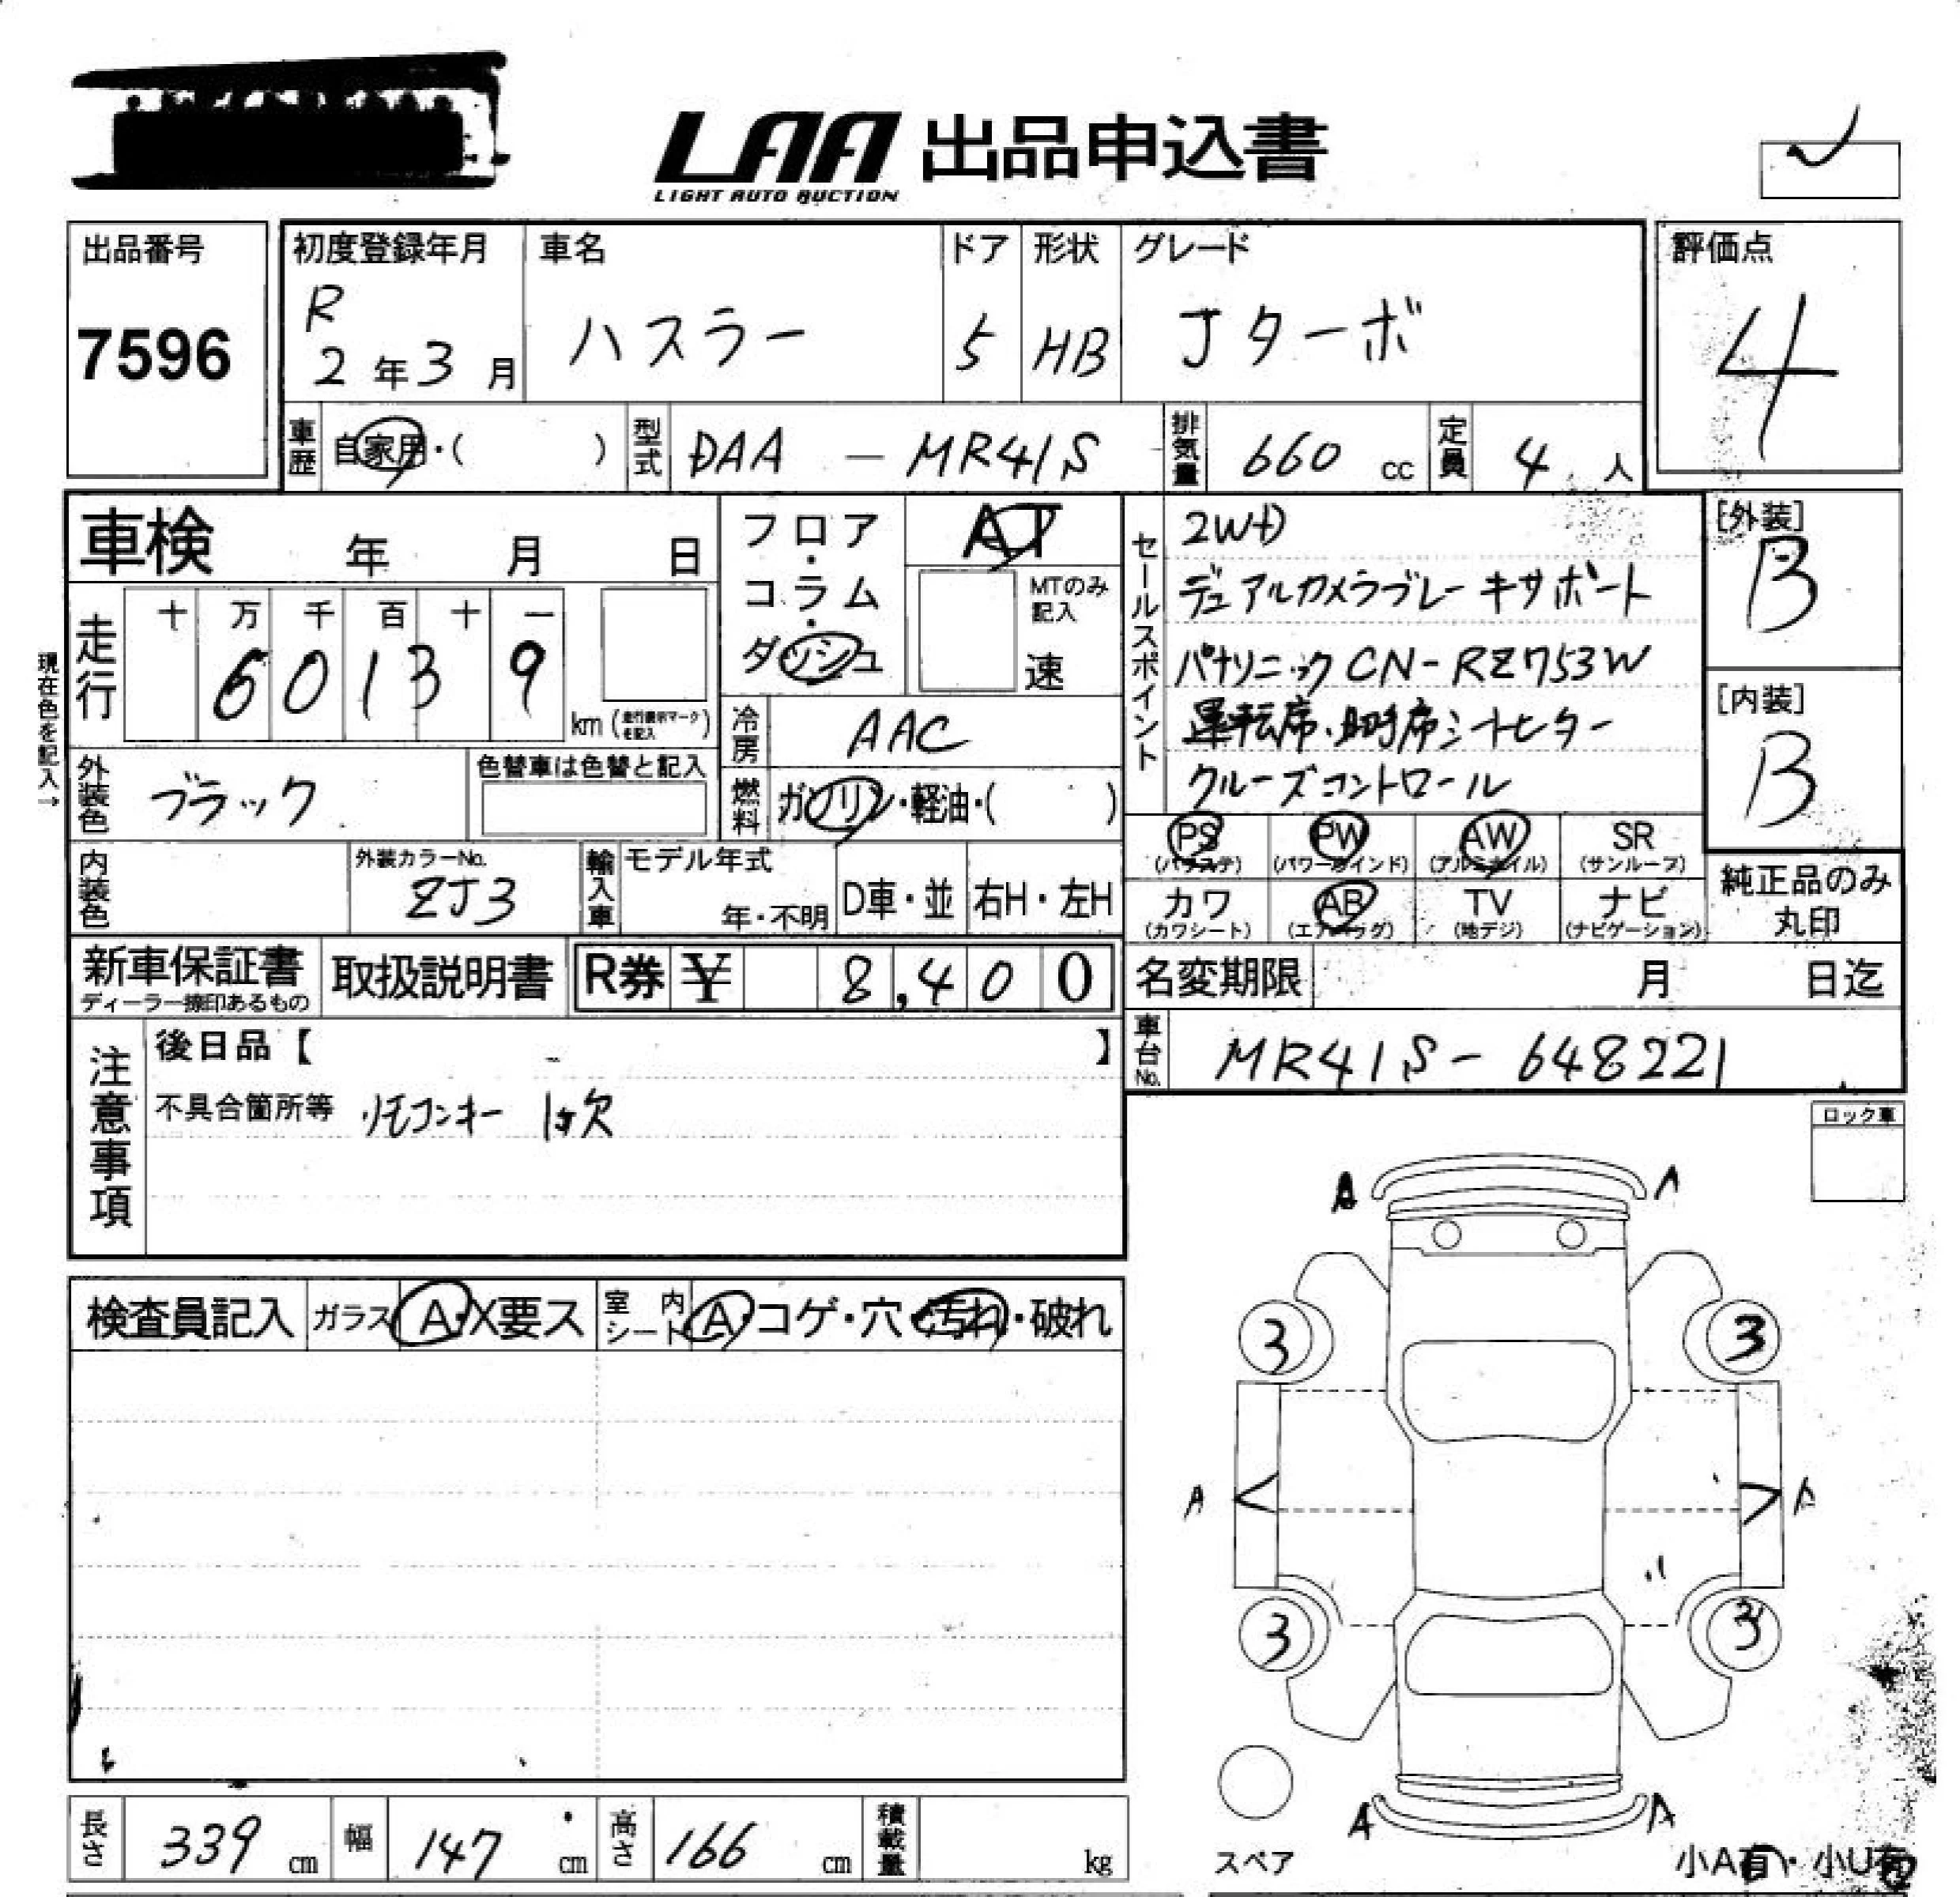 LAA 出品申込書
LIGHT AUTO AUCTION
出品番号
7596
初度登録年月
R
2年3月
車名
ハスラー
ドア
5
形状
HB
グレード
Jターボ
評価点
4
車歴
自家用・( )
型式
DAA - MR41S
排気量
660 cc
定員
4 人
車検 年 月 日
走行
十 万 千 百 十 一
6 0 1 3 9
km (走行表示マークを記入)
現在色を記入→
外装色
ブラック
色替車は色替と記入
内装色
外装カラーNo.
ZJ3
輸入車
モデル年式
年・不明
D車・並
右H・左H
フロア
・
コラム
・
ダッシュ
AT
MTのみ
記入
速
冷房
AAC
燃料
ガソリン・軽油・( )
セールスポイント
2WD
デュアルカメラブレーキサポート
パナソニック CN-RZ753W
運転席・助手席シートヒーター
クルーズコントロール
[外装]
B
[内装]
B
PS
(パワステ)
PW
(パワーウインド)
AW
(アルミホイル)
SR
(サンルーフ)
カワ
(カワシート)
AB
(エアーバッグ)
TV
(地デジ)
ナビ
(ナビゲーション)
純正品のみ
丸印
新車保証書
ディーラー捺印あるもの
取扱説明書
R券 ¥ 8,400
名変期限 月 日迄
車台No.
MR41S-648221
注意事項
後日品【 - 】
不具合箇所等 リモコンキー 1ヶ欠
ロック車
検査員記入
ガラス
A・X要ス
室内
シート
A・コゲ・穴・汚れ・破れ
A A
3 3
A A
3 3
A A
スペア
小A有・小U有
長さ
339 cm
幅
147 cm
高さ
166 cm
積載量
kg